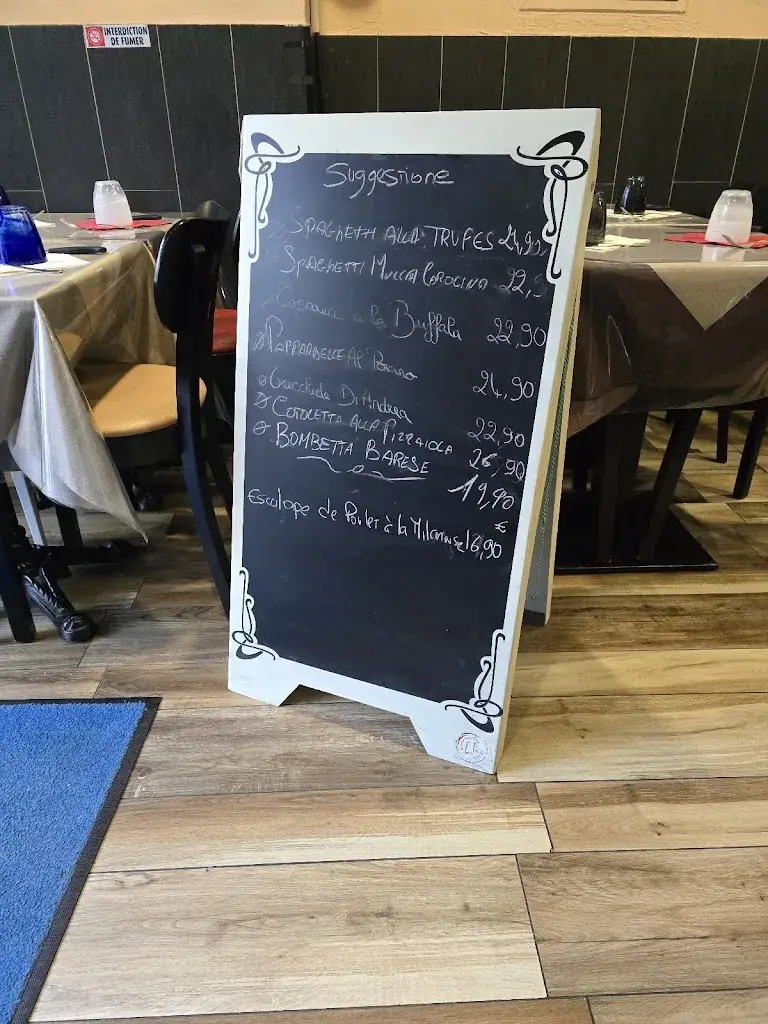 INTERDICTION
DE FUMER
Suggestione
SPAGHETTI ALLA TRUFES 24,90
SPAGHETTI 22,9
a la Buffala 22,90
PAPPARDELLE Al Porcino 24,90
Orecchiete Di Andrea 22,90
COTOLETTA ALLA PIZZAIOLA 26,90
BOMBETTA BARESE 19,90
€
Escalope de Poulet à la Milanaise 16,90